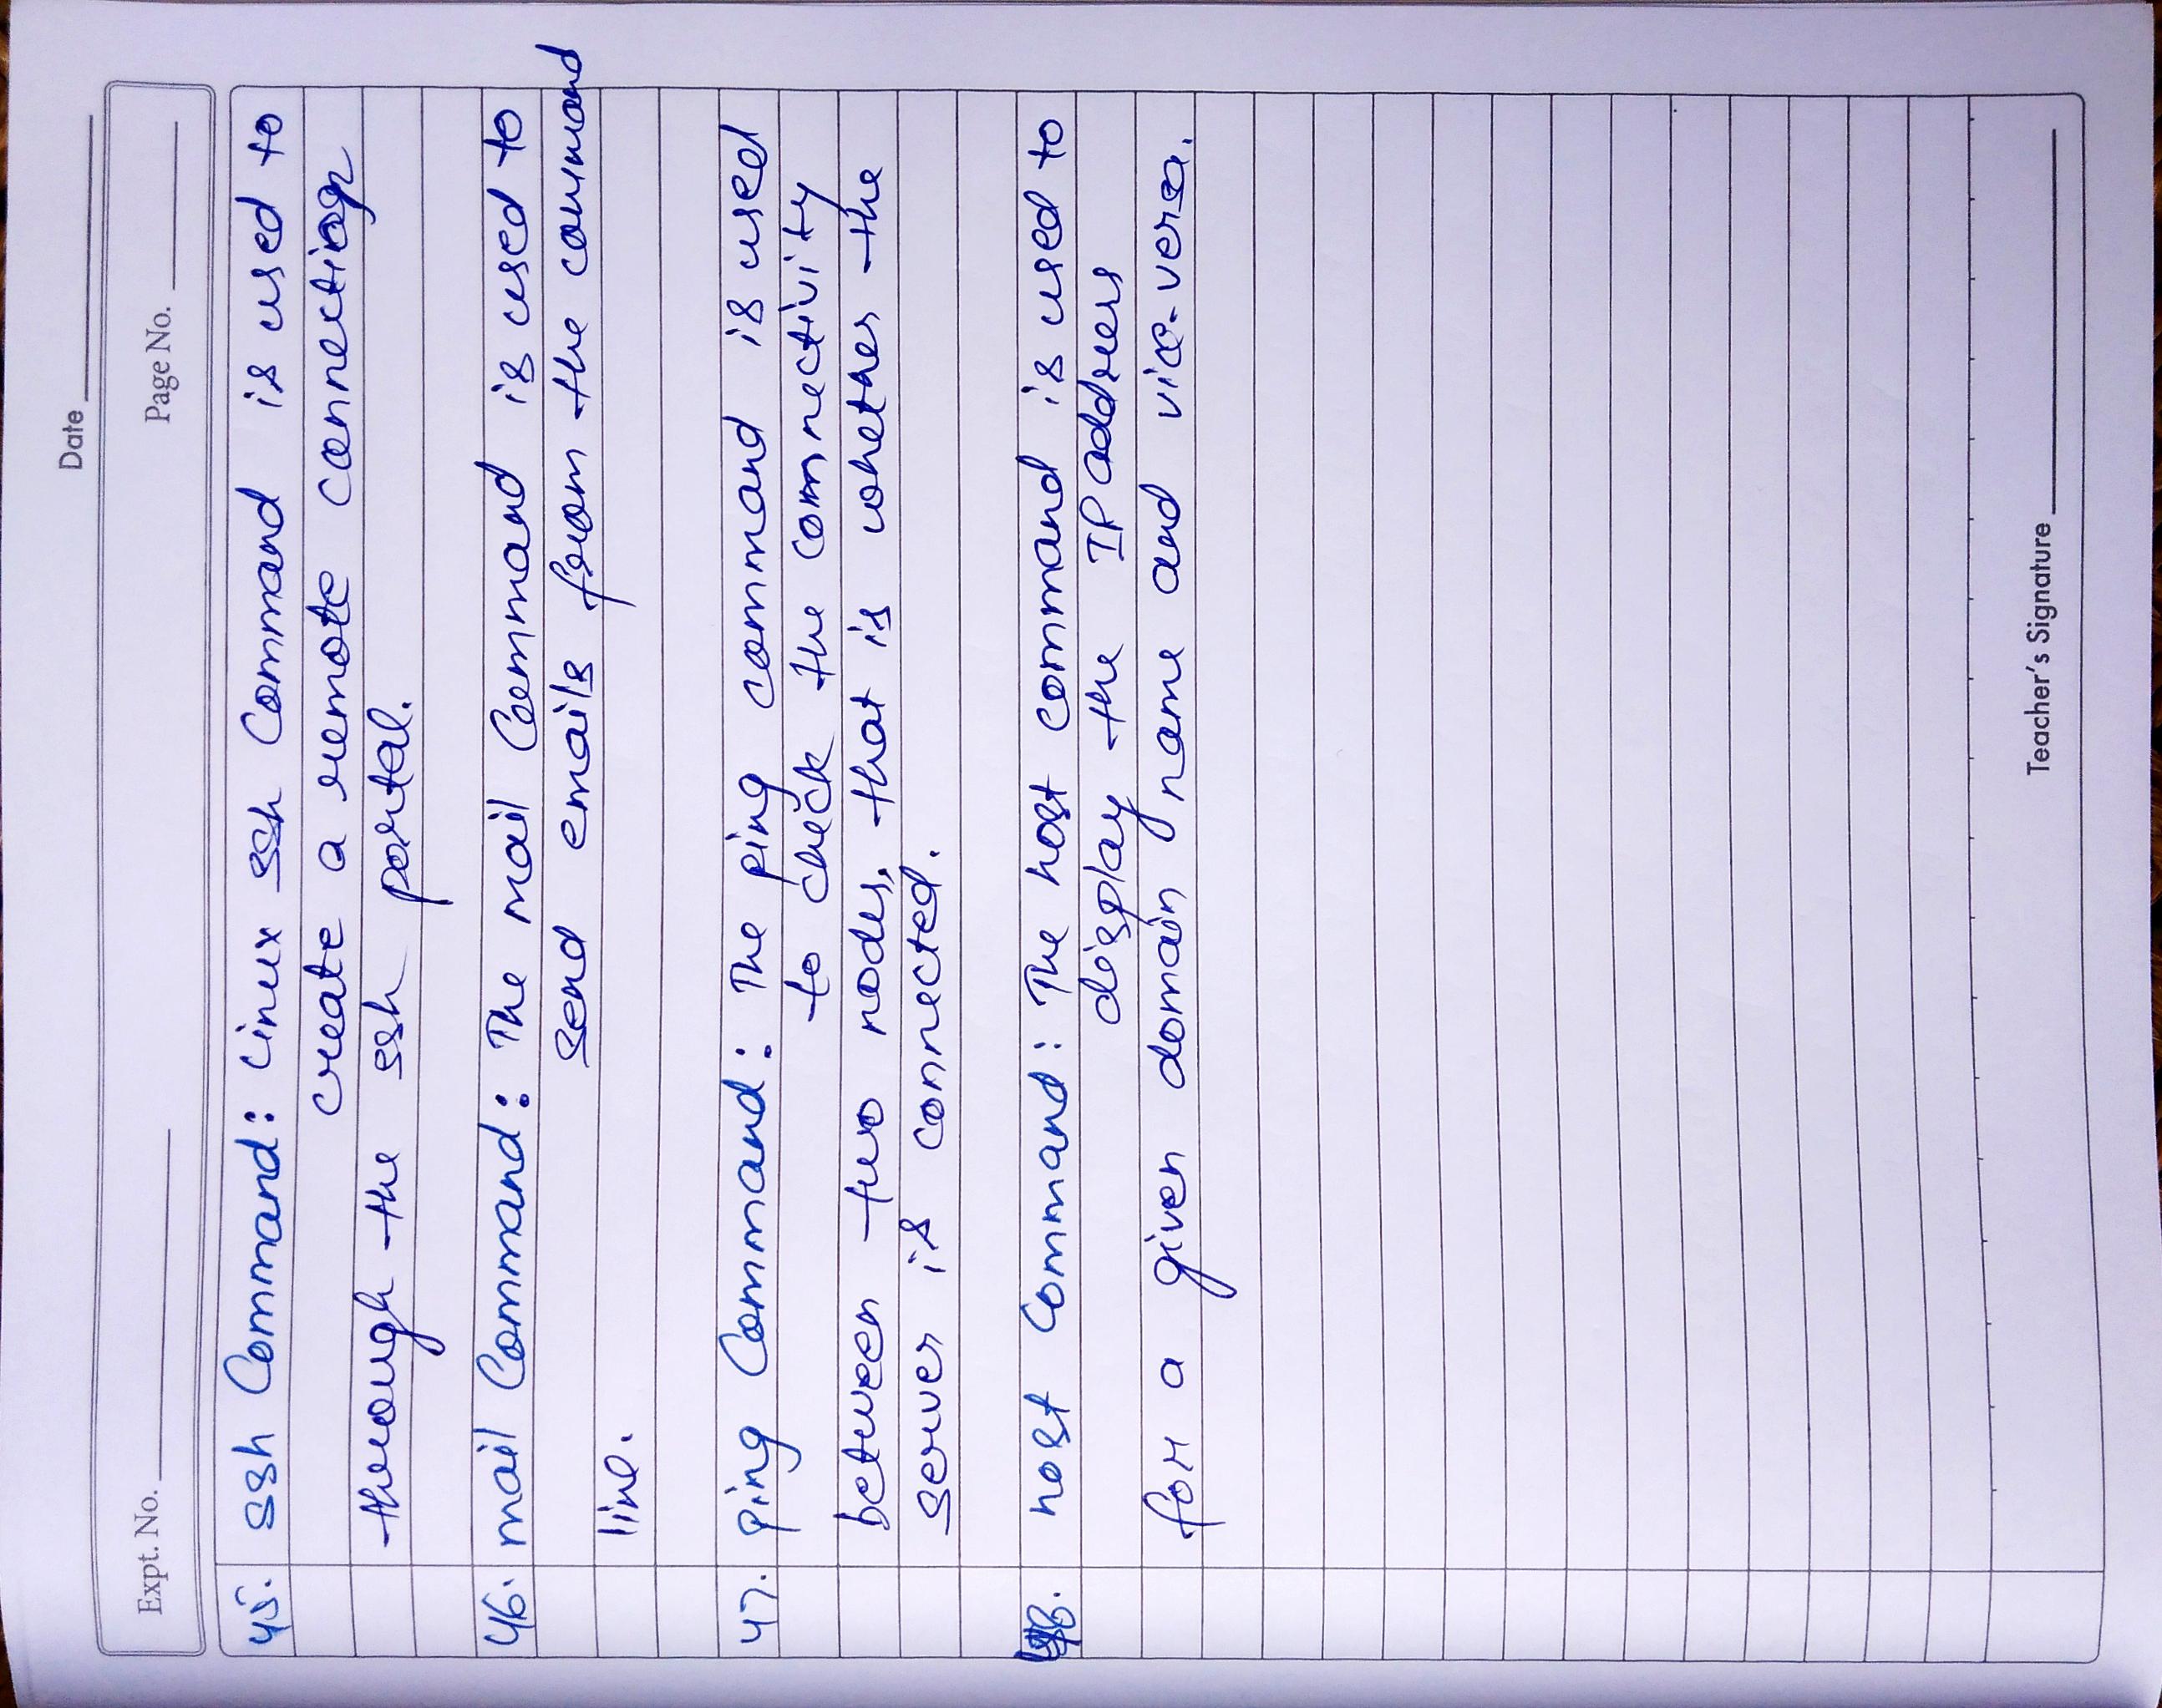 Date
Expt. No.
Page No.
45. ssh Command: Linux ssh Command is used to
create a remote connection
through the ssh portal.
46. mail Command: The mail Command is used to
send emails from the command
line.
47. ping Command: The ping command is used
to check the connectivity
between two nodes, that is whether the
server is connected.
48. host Command: The host command is used to
display the IP address
for a given domain name and vice-versa.
Teacher's Signature